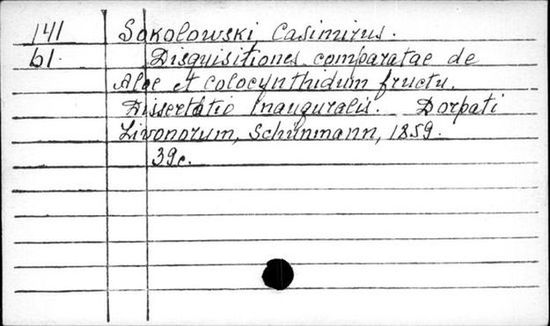 141 Sokolowski, Casimirus.
61. Disquisitiones comparatae de
Aloe et colocynthidum fructu.
Dissertatio inauguralis. Dorpati
Livonorum, Schünmann, 1859.
39c.